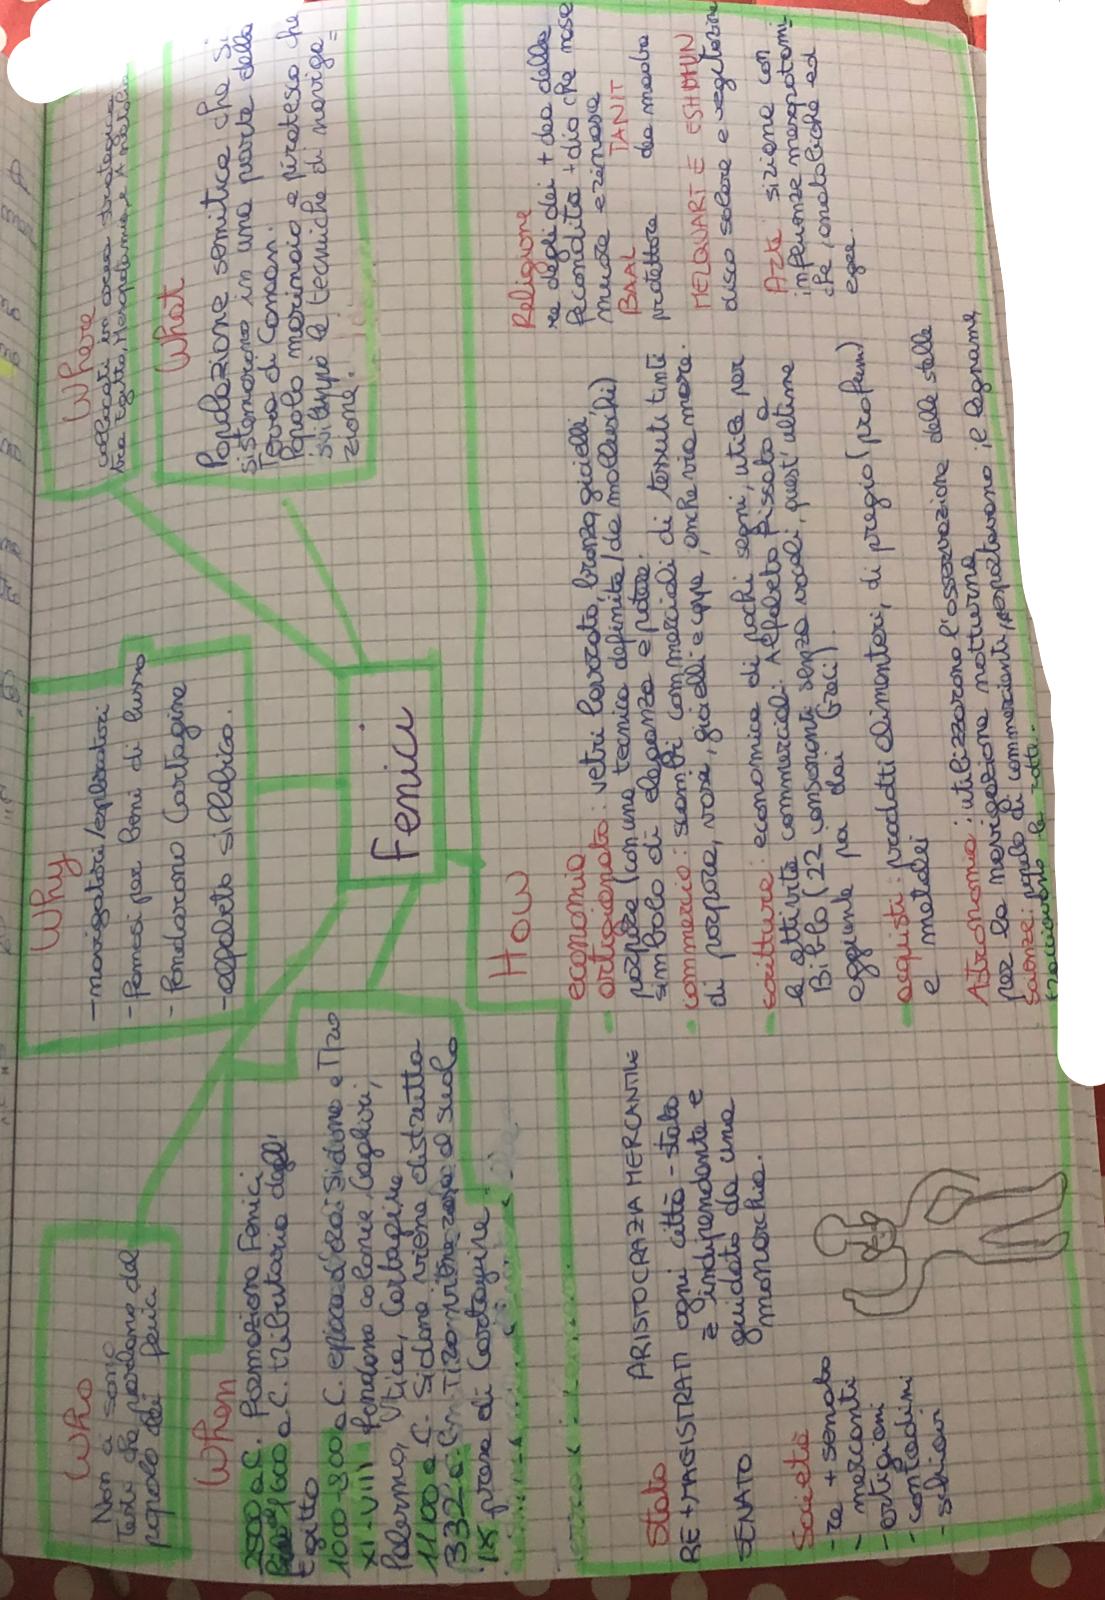 Who
Non ci sono
testi che parlano del
popolo dei fenici.
Why
- navigatori/esploratori
- famosi per beni di lusso
- fondarono Cartagine
- alfabeto sillabico.
Where
collocati in area strategica
tra Egitto, Mesopotamia, e Anatolia
What
Popolazione semitica che si
sistemarono in una parte della
Terra di Canan.
Popolo marinaio e piratesco che
sviluppò le tecniche di naviga=
zione.
When
2500 a.C. Formazione Fenici
1600 a.C. tributario degli
Egitto
1000-800 a.C. epoca d'oro: Sidone e Tiro
XI-VIII fondano colonie Cagliari,
Palermo, Utica, Cartagine
1100 a.C. Sidone viene distrutta
(332 a.C.) Tiro viene rasa al suolo
presa di Cartagine
Fenici
How
Stato ARISTOCRAZIA MERCANTILE
RE + MAGISTRATI ogni città-stato
è indipendente e
SENATO guidato da una
monarchia.
Società
- re + senato
- mercanti
- artigiani
- contadini
- schiavi
economia
artigianato: vetri lavorato, bronzo gioielli,
porpora (con una tecnica definita/da molluschi)
simbolo di eleganza e potere.
commercio: scambi commerciali di tessuti tinti
di porpora, vasi, gioielli e coppe, anche via mare.
scrittura: economica di pochi segni, utile per
le attività commerciali. Alfabeto fissato a
Biblo (22 consonanti senza vocali, quest'ultime
aggiunte poi dai Greci).
acquisti: prodotti alimentari, di pregio (profumi)
e metalli
Astronomia: utilizzarono l'osservazione delle stelle
per la navigazione notturna
Scienze: popolo di commercianti, esportavano il legname,
tracciavano le rotte.
Religione
re degli dei + dea della
fecondità + dio che nasce
muore e rinasce
BAAL TANIT
protettore dea madre
MELQUART E ESHMUN
disco solare e vegetazione
Arte sizione con
influenze mesopotami
che, anatoliche ed
egee.